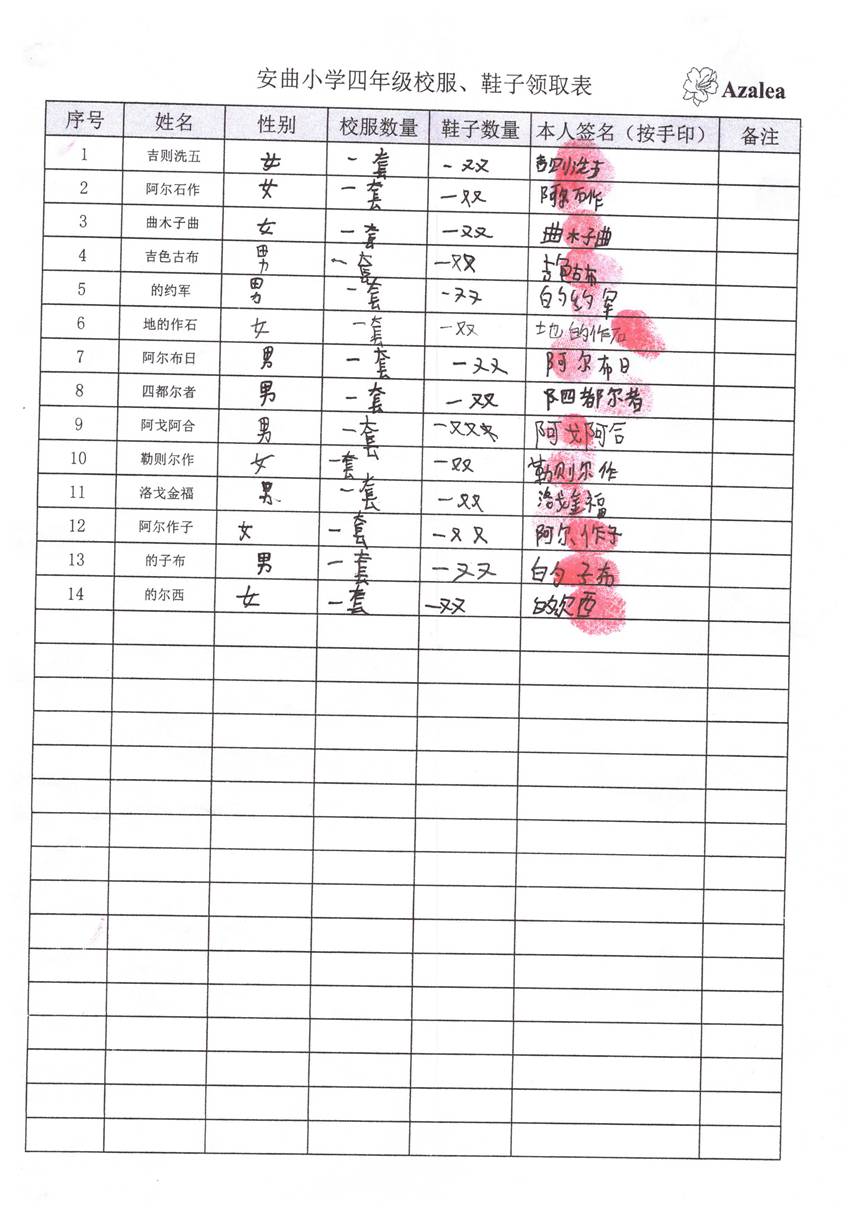 安曲小学四年级校服、鞋子领取表
Azalea
序号 姓名 性别 校服数量 鞋子数量 本人签名（按手印） 备注
1 吉则洗五 女 一套 一双 吉则洗五
2 阿尔石作 女 一套 一双 阿尔石作
3 曲木子曲 女 一套 一双 曲木子曲
4 吉色古布 男 一套 一双 吉色古布
5 的约军 男 一套 一双 的约军
6 地的作石 女 一套 一双 地的作石
7 阿尔布日 男 一套 一双 阿尔布日
8 四都尔者 男 一套 一双 阝四都尔者
9 阿戈阿合 男 一套 一双 阿戈阿合
10 勒则尔作 女 一套 一双 勒则尔作
11 洛戈金福 男 一套 一双 洛戈金福
12 阿尔作子 女 一套 一双 阿尔作子
13 的子布 男 一套 一双 的子布
14 的尔西 女 一套 一双 的尔西